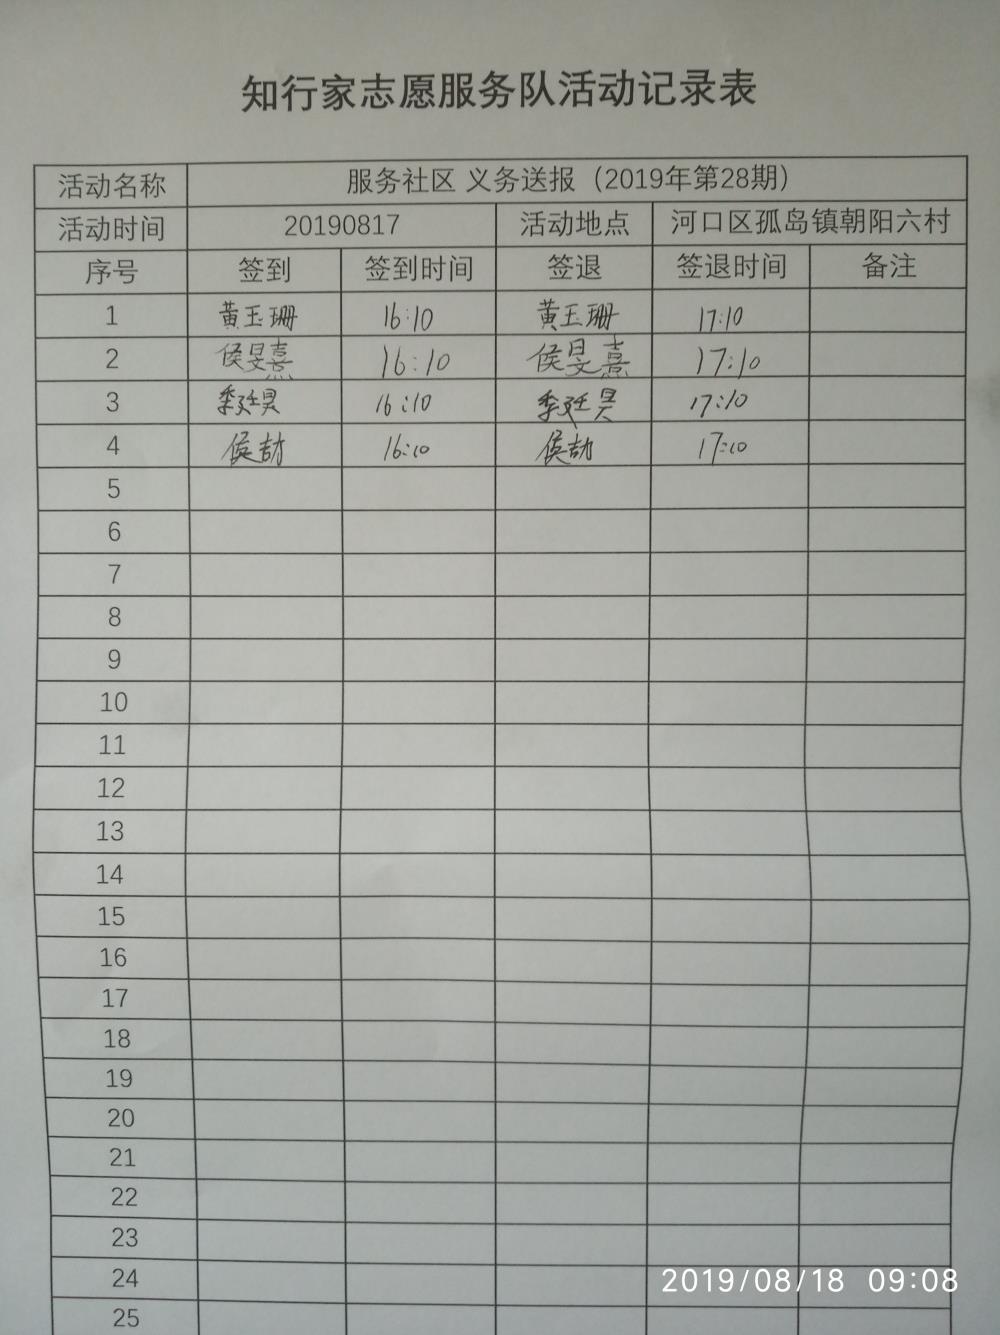 知行家志愿服务队活动记录表
活动名称 服务社区 义务送报（2019年第28期）
活动时间 20190817 活动地点 河口区孤岛镇朝阳六村
序号 签到 签到时间 签退 签退时间 备注
1 黄玉珊 16:10 黄玉珊 17:10
2 侯旻熹 16:10 侯旻熹 17:10
3 季廷昊 16:10 季廷昊 17:10
4 侯劼 16:10 侯劼 17:10
5
6
7
8
9
10
11
12
13
14
15
16
17
18
19
20
21
22
23
24
25
2019/08/18 09:08